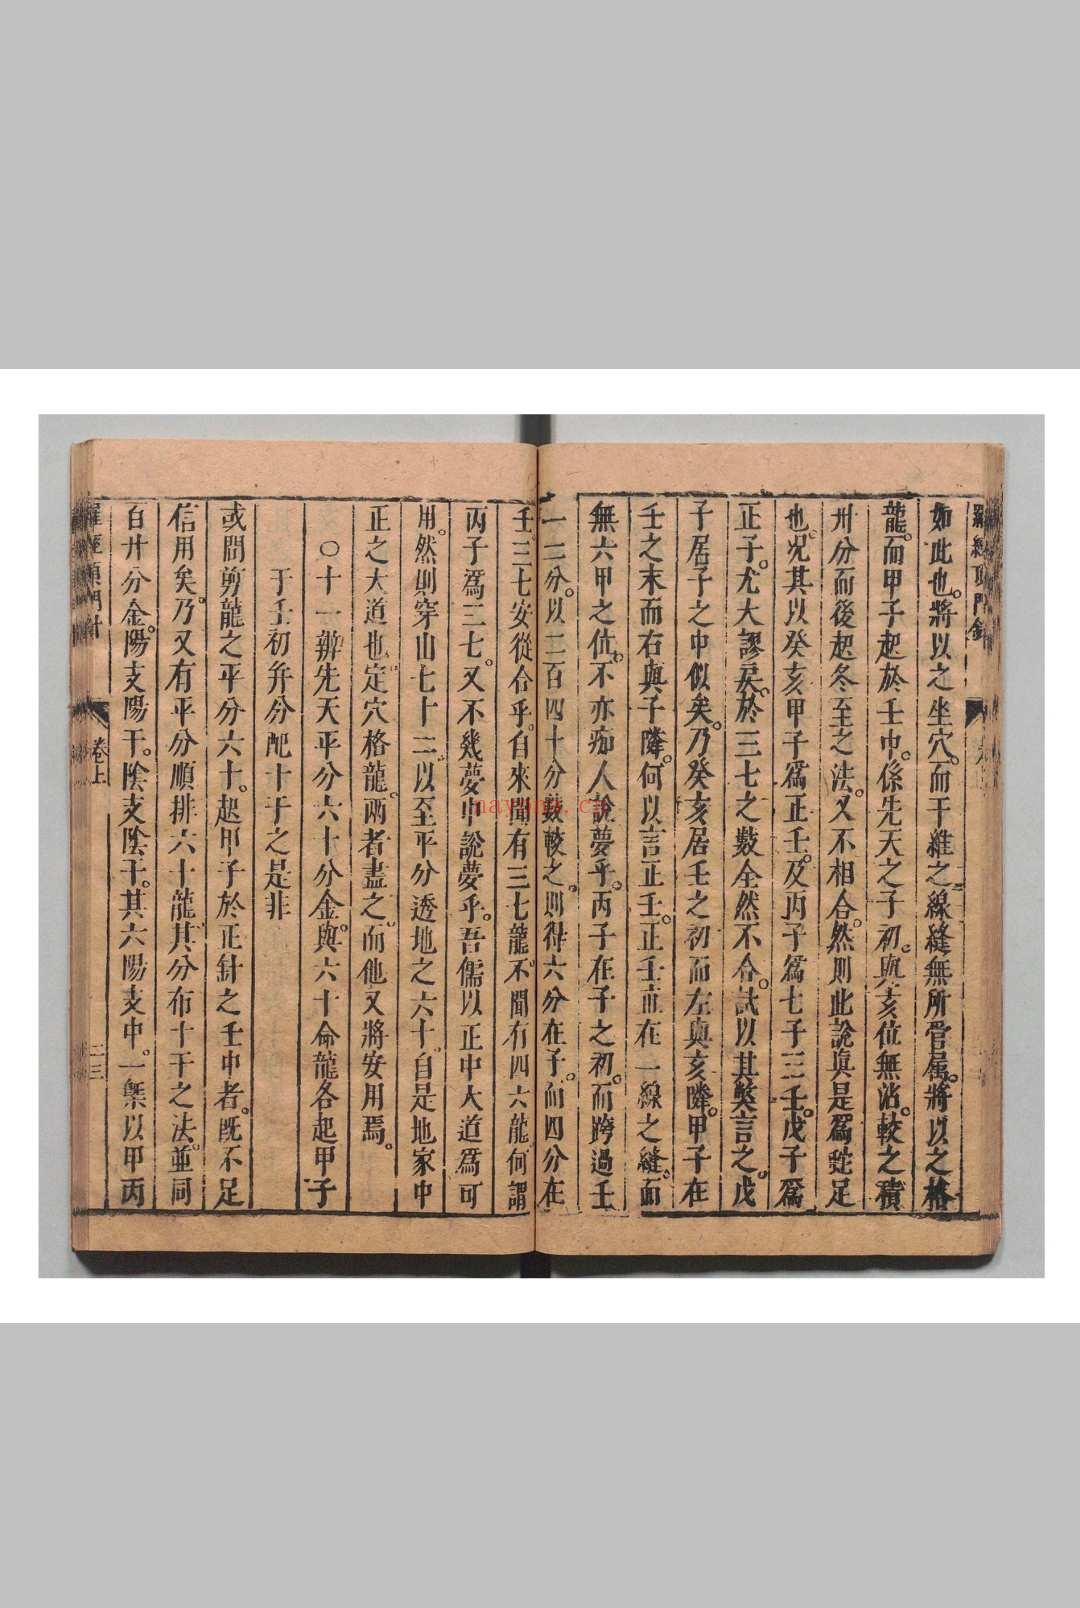 羅經頂門針
如此也。將以之坐穴。而干維之線縫無所管屬。將以之格
龍。而甲子起於壬中。係先天之子初。與亥位無沾。較之積
卅分而後起冬至之法。又不相合。然則此說真是為蛇足
也。況其以癸亥甲子為正壬。及丙子為七子三壬。戊子為
正子。尤大謬戾。於三七之數全然不合。試以其獘言之。戊
子居子之中似矣。乃癸亥居壬之初而左與亥隣。甲子在
壬之末而右與子隣。何以言正壬。正壬直在一線之縫。而
無六甲之位。不亦痴人說夢乎。丙子在子之初。而跨過壬
一二分。以三百四十分數較之。則得六分在子。而四分在
壬。三七安從合乎。自來聞有三七龍。不聞有四六龍。何謂
丙子為三七。又不幾夢中說夢乎。吾儒以正中大道為可
用。然則穿山七十二。以至平分透地之六十。自是地家中
正之大道也。定穴格龍。兩者盡之。而他又將安用焉。
〇十一辨先天平分六十分金。與六十命龍各起甲子
于壬初并分配十干之是非
或問剪龍之平分六十。起甲子於正針之壬中者。既不足
信用矣。乃又有平分順排六十龍。其分布十干之法。並同
百廿分金。陽支陽干。陰支陰干。其六陽支中。一槩以甲丙
羅經頂門針
卷上
二三
nayona.cn